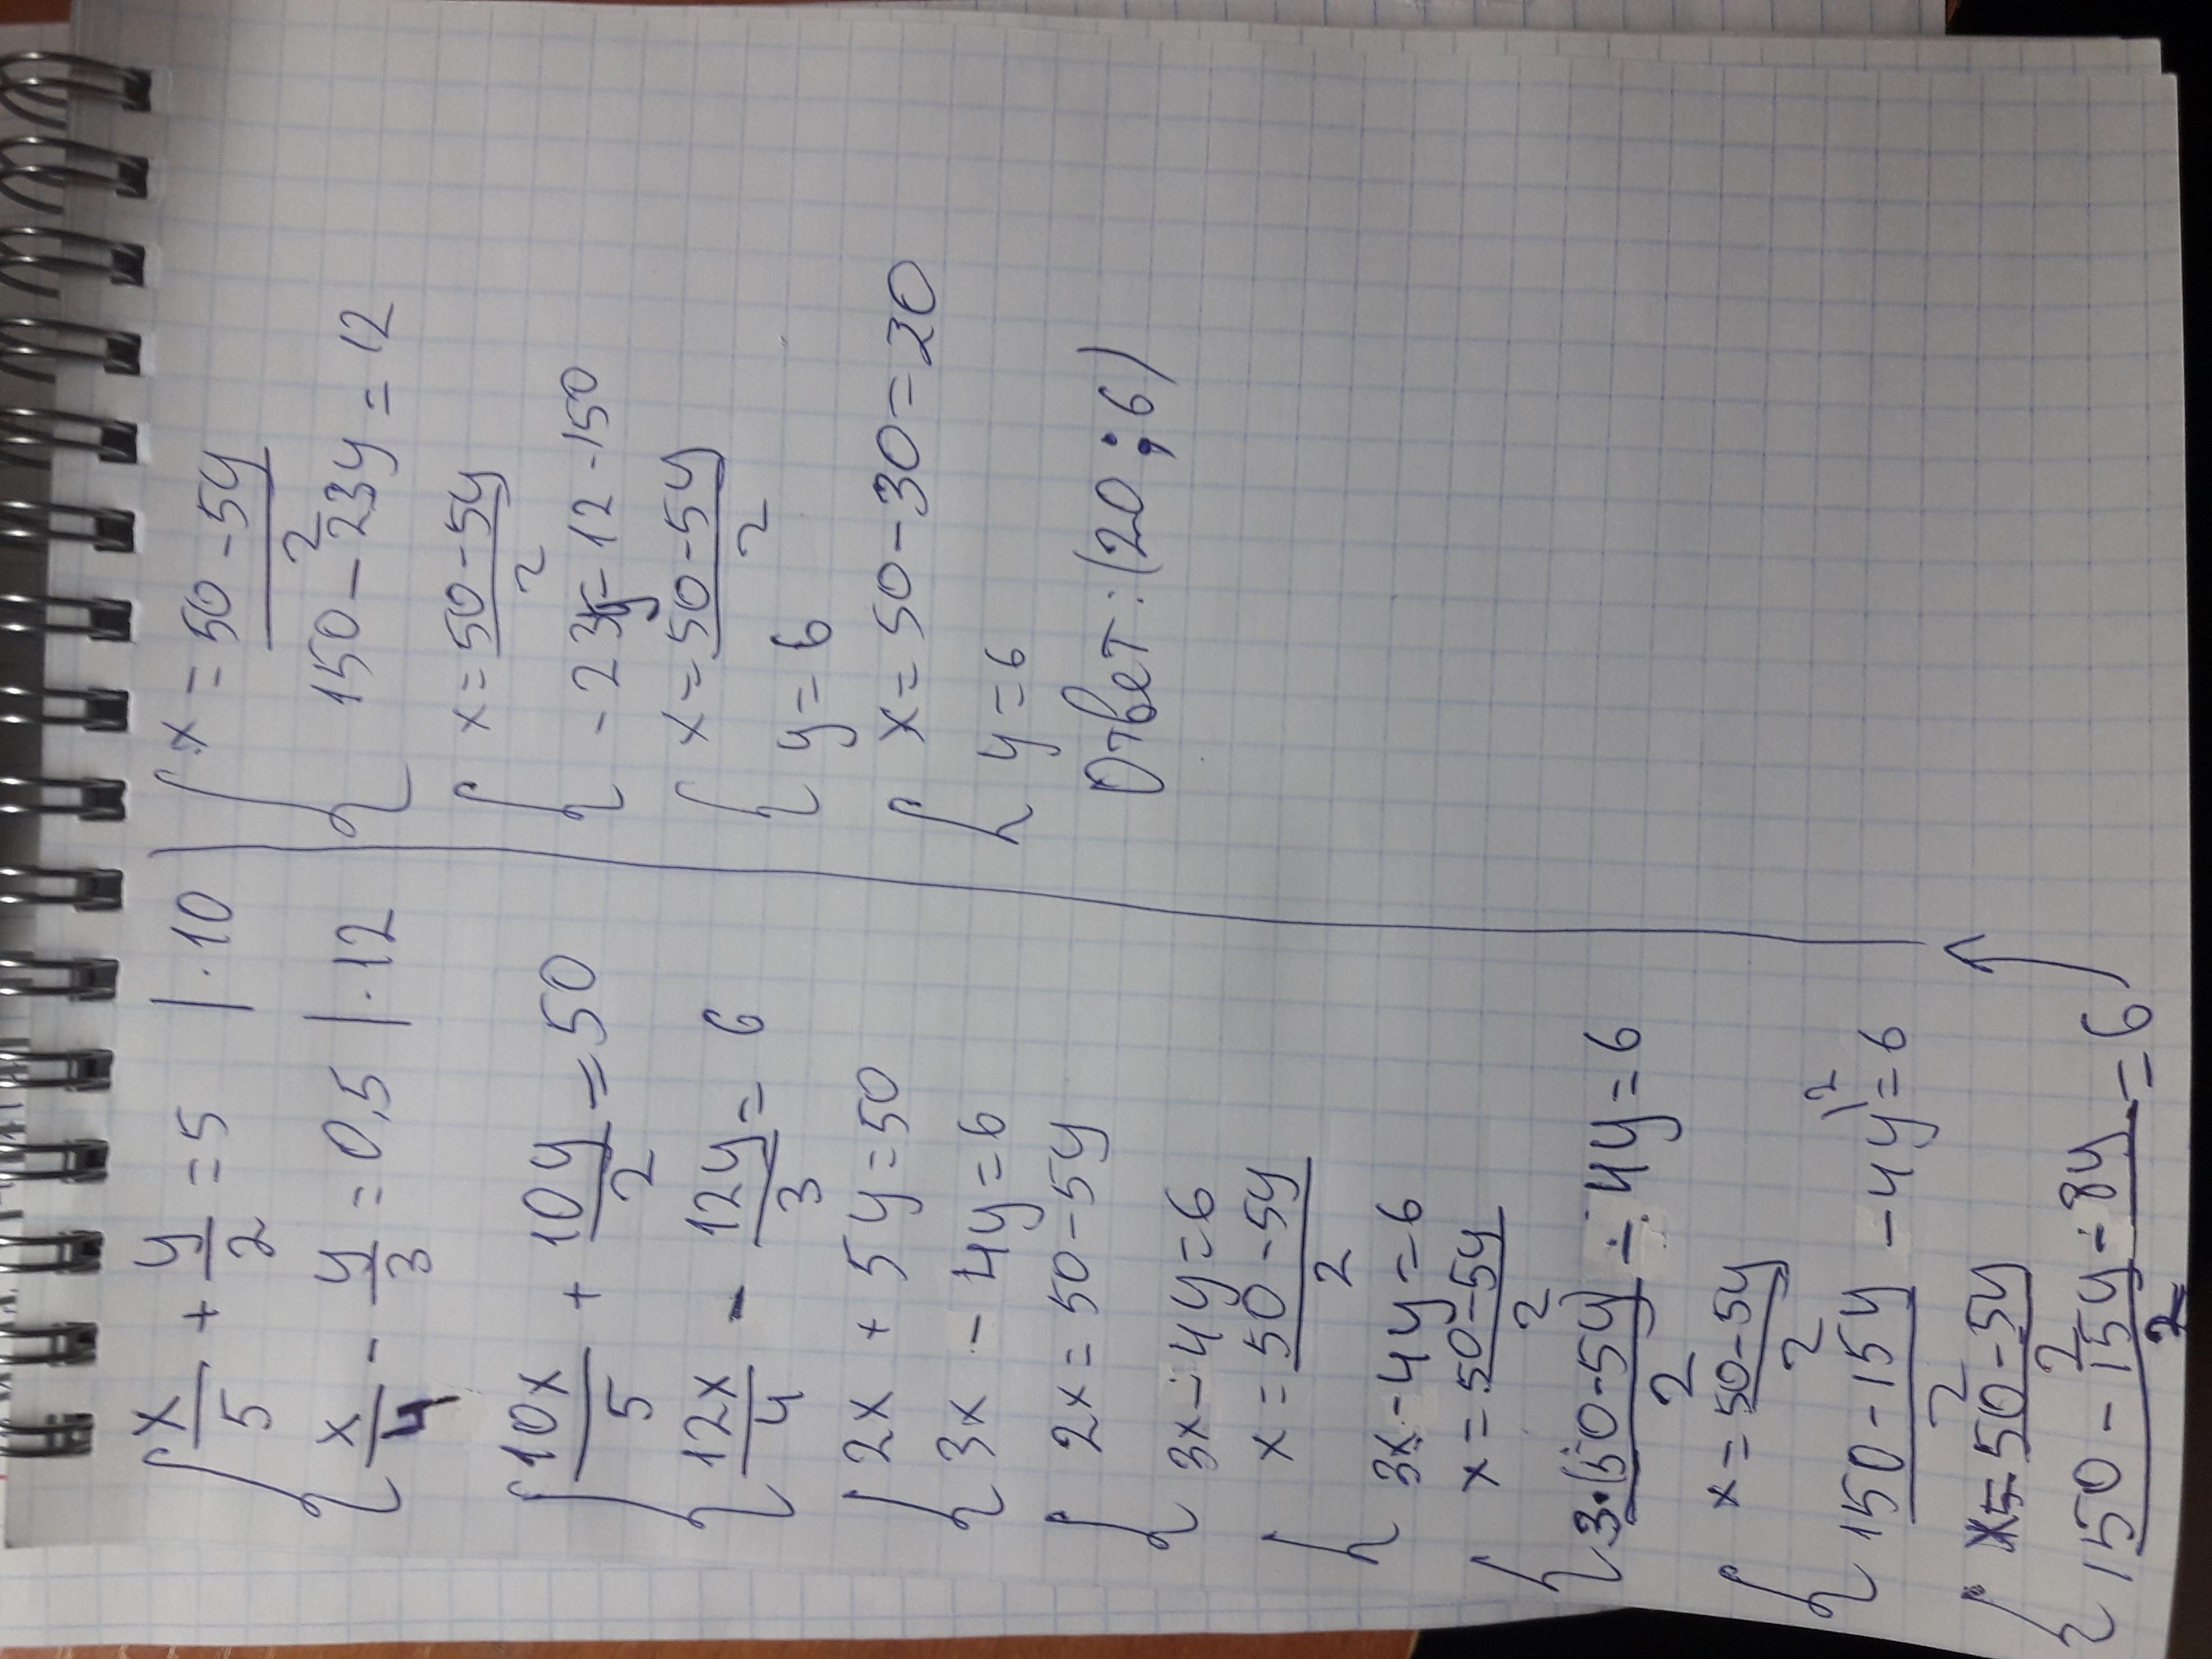 x/5 + y/2 = 5 | · 10
x/4 - y/3 = 0,5 | · 12
10x/5 + 10y/2 = 50
12x/4 - 12y/3 = 6
2x + 5y = 50
3x - 4y = 6
2x = 50 - 5y
3x - 4y = 6
x = 50 - 5y / 2
3x - 4y = 6
x = 50 - 5y / 2
3·(50 - 5y) / 2 - 4y = 6
x = 50 - 5y / 2
150 - 15y / 2 - 4y = 6
x = 50 - 5y / 2
150 - 15y - 8y / 2 = 6
x = 50 - 5y / 2
150 - 23y = 12
x = 50 - 5y / 2
- 23y = 12 - 150
x = 50 - 5y / 2
y = 6
x = 50 - 30 = 20
y = 6
Ответ: (20 ; 6)